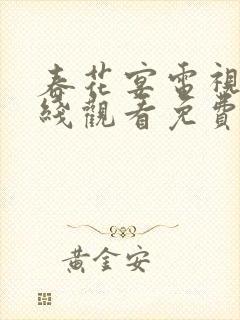 春花宴電視
綫觀看免費
黃金安